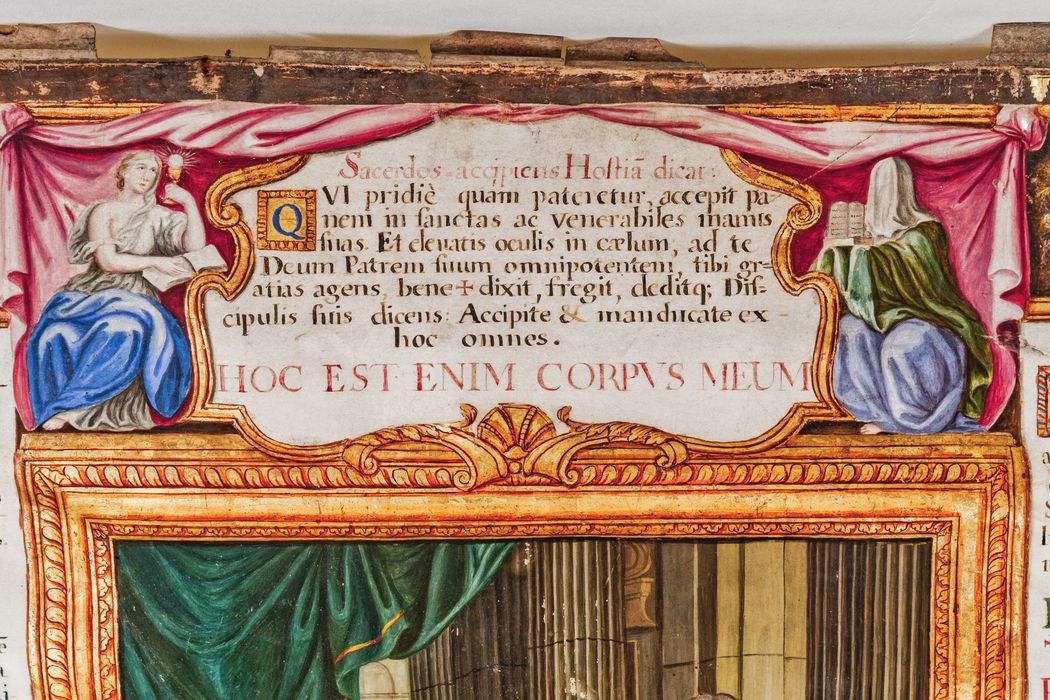 Sacerdos accipiens Hostiã dicat:
QVI pridiè quam pateretur, accepit pa-
nem in sanctas ac venerabiles manus
suas. Et elevatis oculis in cælum, ad te
Deum Patrem suum omnipotentem, tibi gr-
atias agens, bene + dixit, fregit, deditq; Dis-
cipulis suis dicens: Accipite & manducate ex
hoc omnes.
HOC EST ENIM CORPVS MEUM